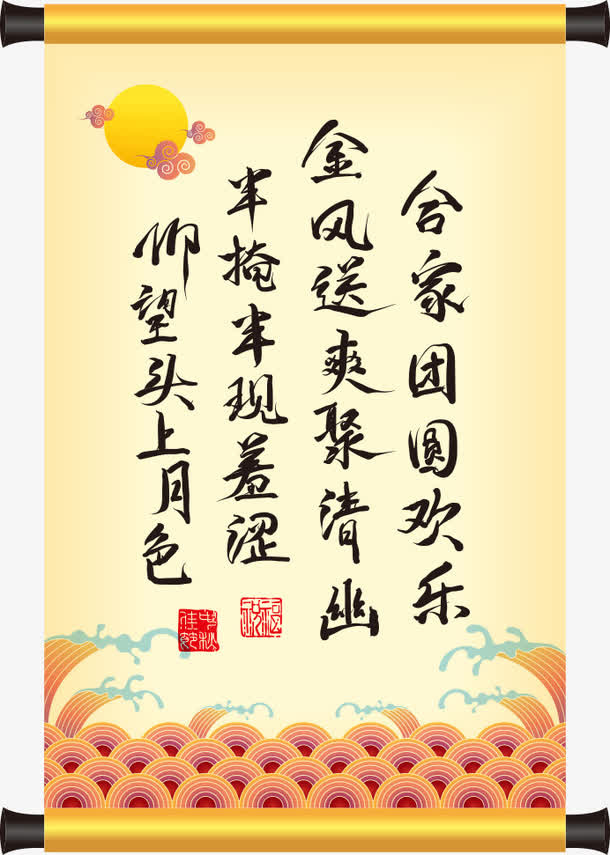 合家团圆欢乐
金风送爽聚清幽
半掩半现羞涩
仰望头上月色
祝福
中秋
佳節